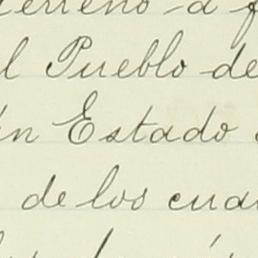 terreno a f
l Pueblo de
án Estado
de los cua